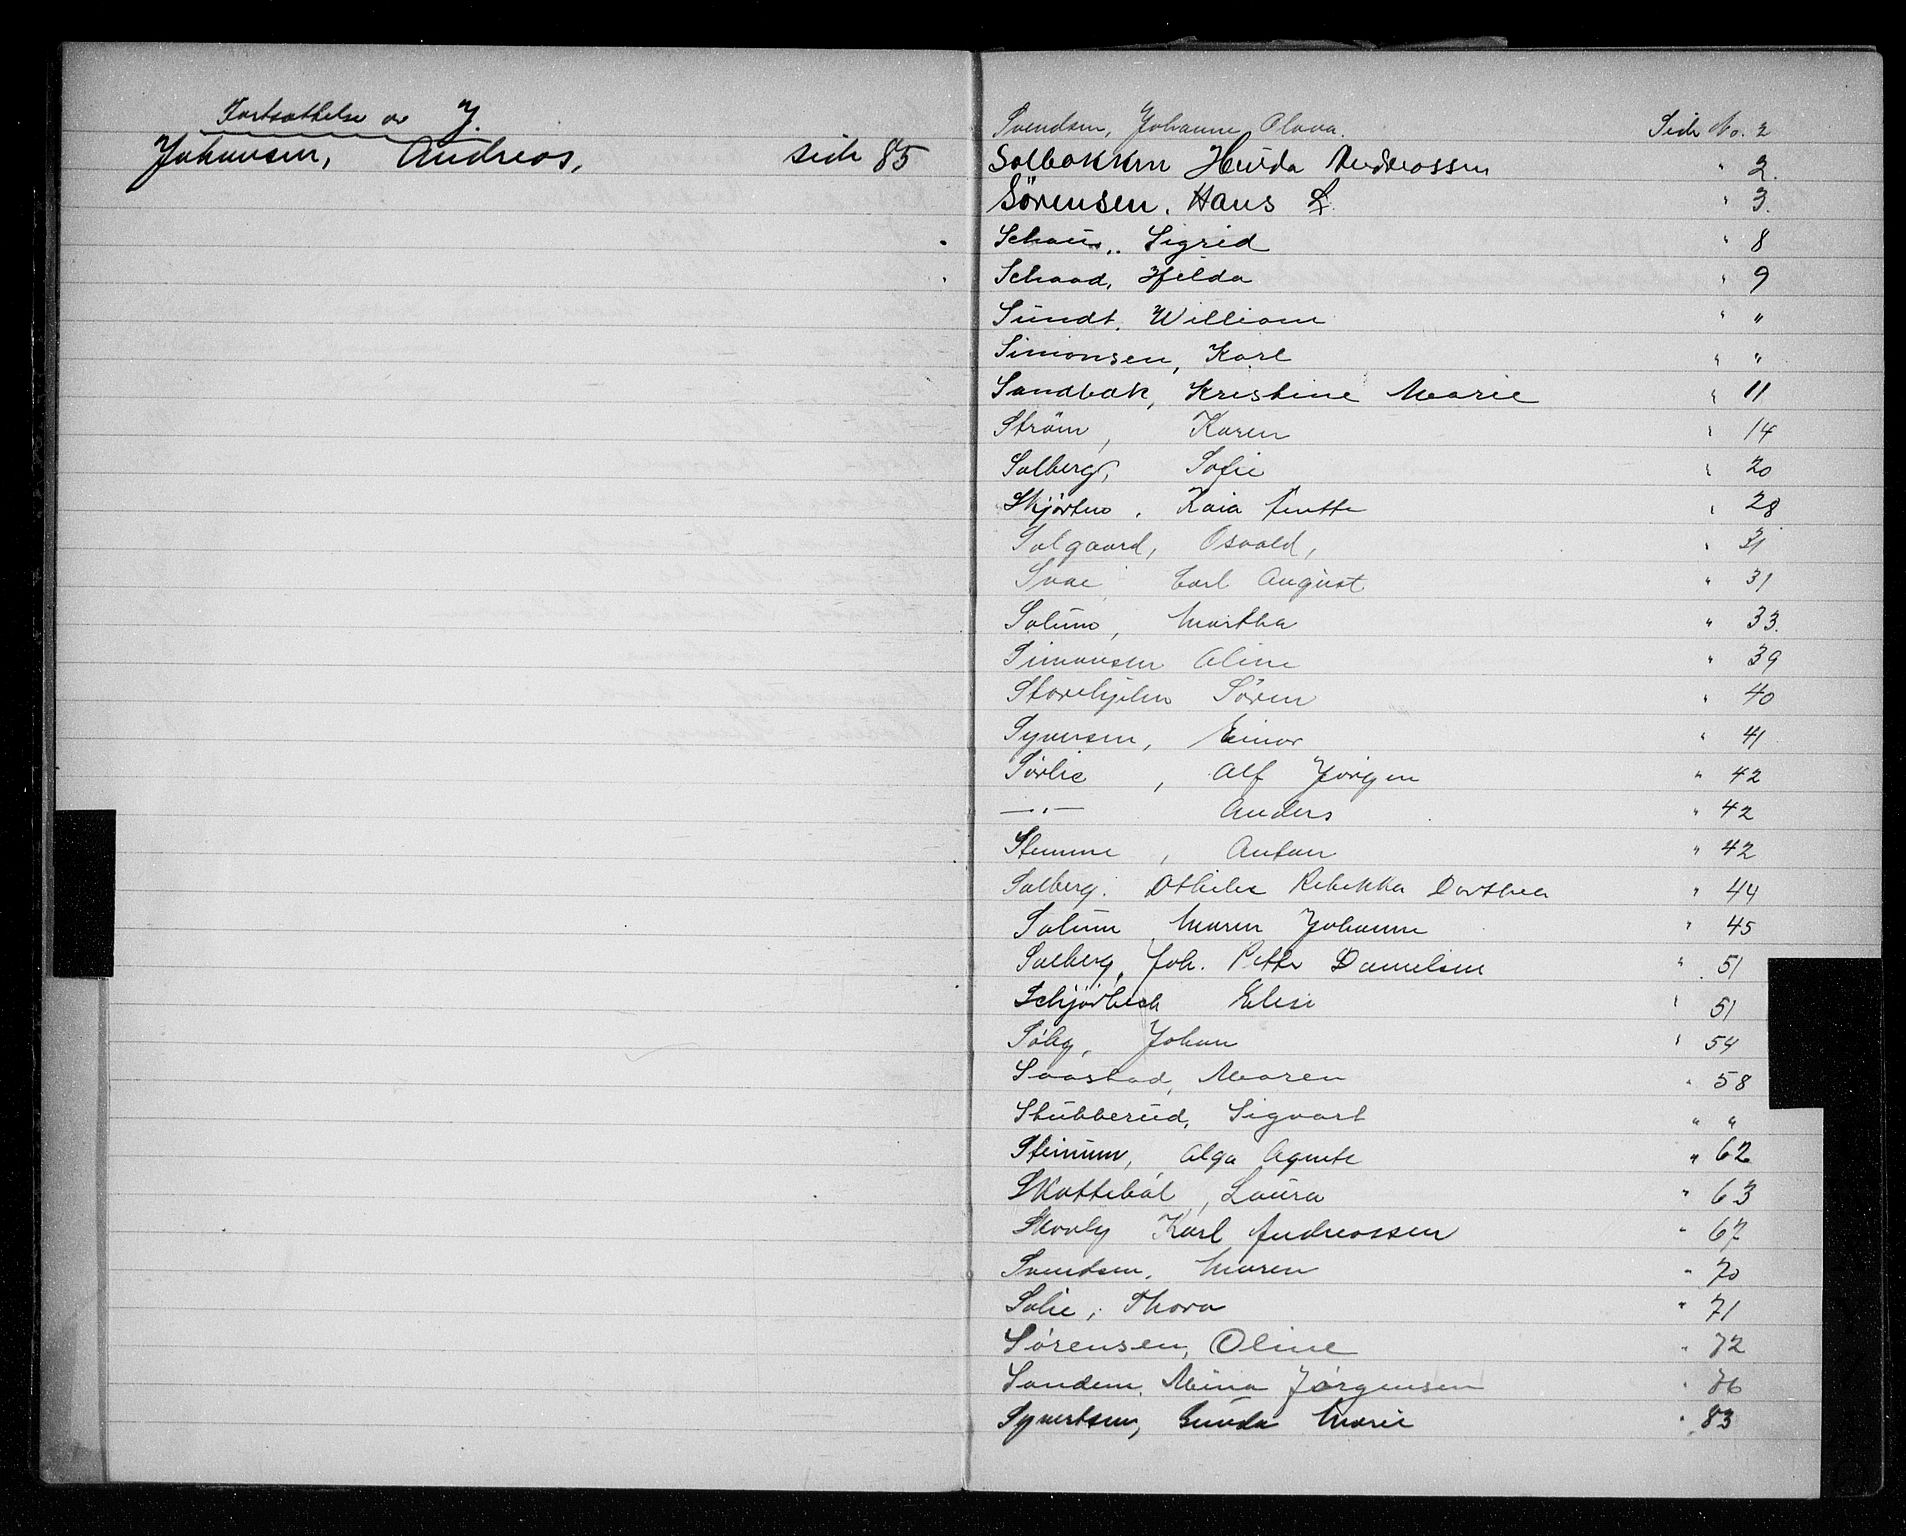 Fortsættelse av J.
Johansen, Andreas, side 85
Svendsen, Johanne Olava. Side No. 2
Solbakken Hulda Andreassen " 2.
Sörensen. Hans L. " 3.
Schau.. Sigrid " 8
Schaad, Hilda " 9
Sundt, William " "
Simonsen, Karl " "
Sandbak, Kristine Marie " 11
Ström, Karen " 14
Solberg, Sofie " 20
Skjörten, Kaia Anette " 28
Solgaard, Osvald, " 31
Svae, Carl August " 31
Solum, Martha " 33.
Simonsen Aline " 39
Storehjelm Sören " 40
Syversen, Einar " 41
Sörlie, Alf Jörgen " 42
—"— Anders " 42
Stemme, Anton " 42
Solberg. Othilie Rebekka Dorthea " 44
Solum Maren Johanne " 45
Solberg, Joh. Petter Danielsen " 51
Schjörbeck Elise " 51
Söby, Johan " 54
Saastad, Maren " 58
Stubberud, Sigvart " "
Steinum, Alga Agnete " 62
Skotteböl, Laura " 63
Skovly Karl Andreassen " 67
Svendsen, Maren " 70
Solie, Thora " 71
Sörensen, Oline " 72
Sandem, Mina Jörgensen " 76
Syvertsen, Gunda Marie " 83